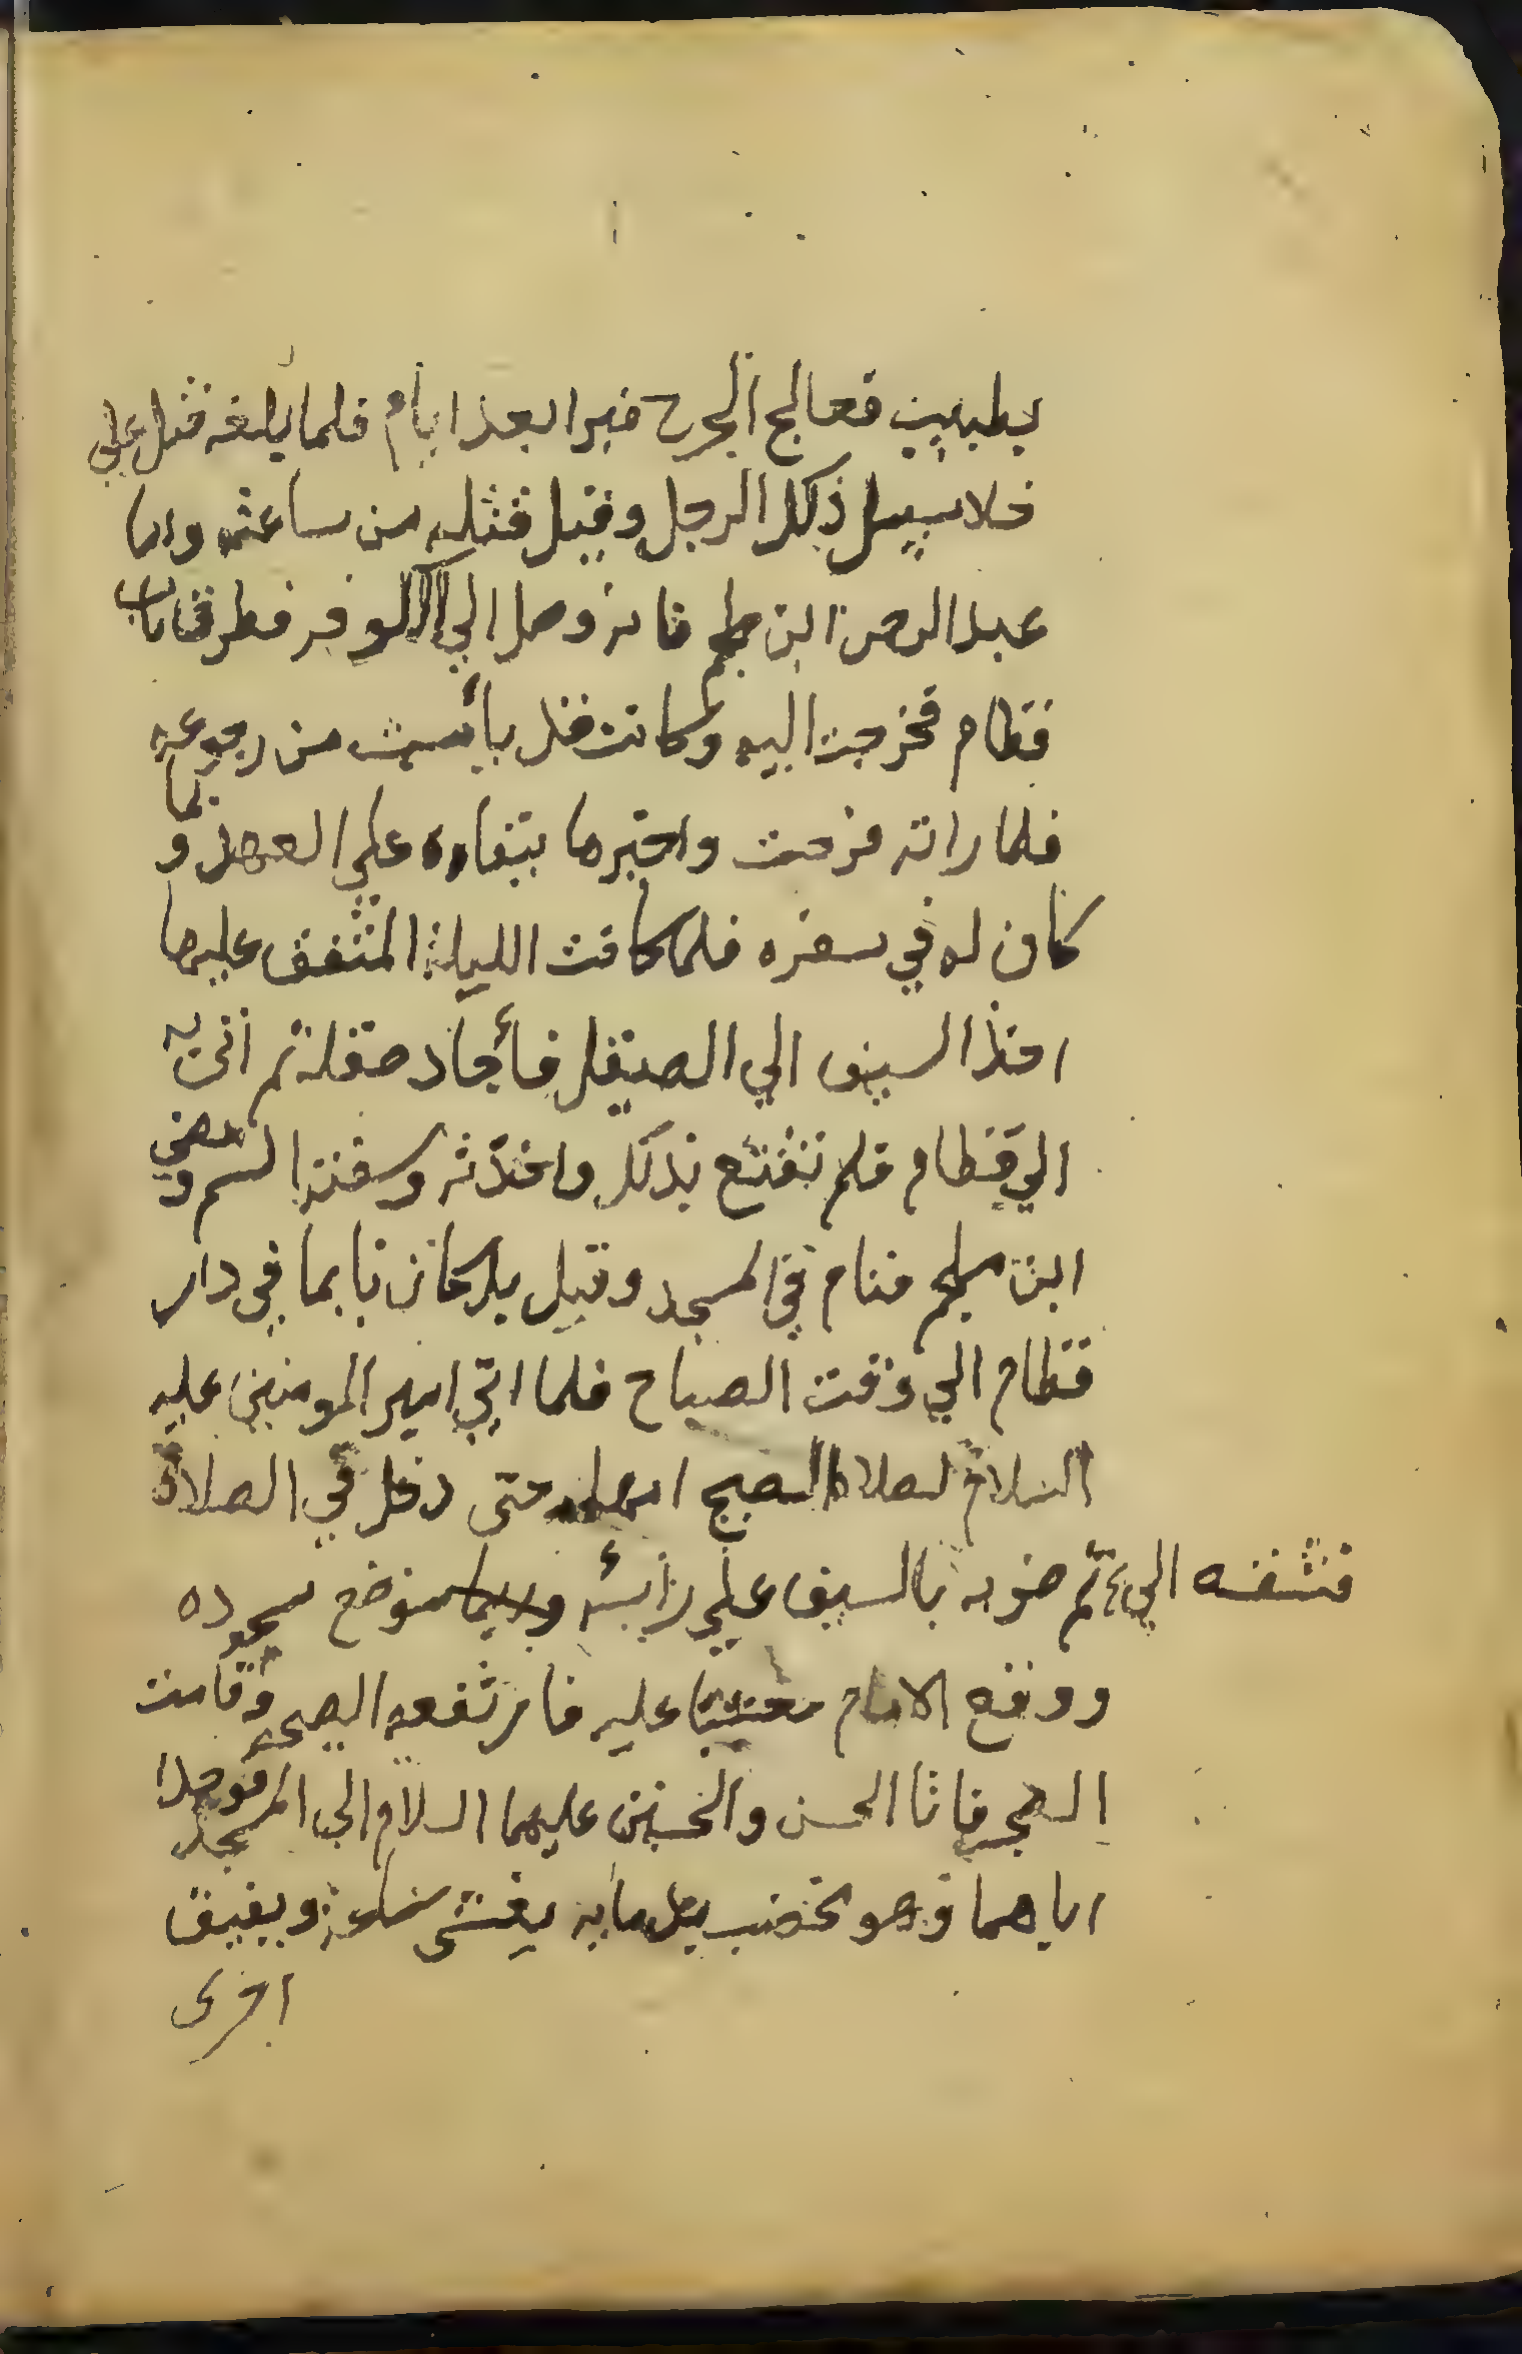 بطبيب فعالج الجرح فبرا بعد ايام فلما بلغه قتل علي
خلا سبيل ذلك الرجل وقيل قتله من ساعته واما
عبد الرحمن ابن ملجم فانه وصل الي الكوفه فطرق باب
قطام فخرجت اليه وكانت قد يأست من رجوعه
فلما راته فرحت واخبرها ببقاوه علي العهد وبما
كان له في سفره فلما كانت الليلة المتفق عليها
اخذ السيف الي الصيقل فأجاد صقله ثم اتى به
الي قطام فلم تقتنع بذلك واخذته وسقته السم ومضى
ابن ملجم فنام في المسجد وقيل بل كان نايما في دار
قطام الي وقت الصباح فلما اتي امير المومنين عليه
السلام لصلاة الصبح امهله حتى دخل في الصلاة
ثم ضربه بالسيف علي رأسه موضع سجوده
ووقع الامام مغشيا عليه فارتفعه الصيحه وقامت
الضجه فاتا الحسن والحسين عليهما السلام الي المسجد فوجدا
اباهما وهو مخضب بدمايه يغشى ساعة ويفيق
اخرى